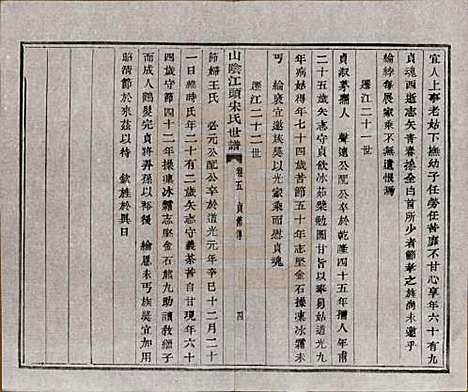 宜人上事老姑下撫幼子任勞任苦靡不甘心享年六十有九
貞魂西逝志矢青春操全白首所少者節孝之旌尚未邀乎
綸綍每展家乘不無遺恨焉
遷江二十一世
貞淑孺人 聲遠公配公卒於乾隆四十五年孺人年甫
二十五歲矢志守貞飲冰茹蘗勉圖甘旨以奉舅姑道光九
年病始得年七十四歲苦節五十年志堅金石操凜冰霜未
丐 綸褒宜邀族奬以光家乘而慰貞魂
遷江二十二世
山陰江頭宋氏世譜 卷五 貞節傳 四
節婦王氏 必元公配公卒於道光元年辛巳十二月二十
一日維時氏年二十有二歲矢志守義茶苦自甘現年六十
四歲守節四十二年操凜冰霜志堅金石熊丸助讀教繼子
而成人鶴髮完貞將弄孫以娛老 綸恩未丐族奬宜加用
昭清節於來茲以待 欽旌於異日